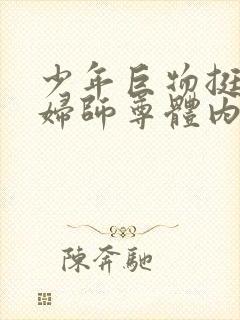 少年巨物挺
婦師尊體內
陳奔馳